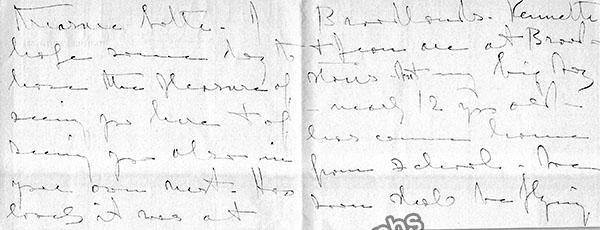 treasure lotte. I
hope some day to
have the pleasure of
seeing you here & of
seeing you also in
your own nest. How
lovely it was at
Broadlands. Kennette
& Jean are at Broad-
stairs but my big boy
- nearly 12 yrs old -
has come home
from school. We
soon shall be flying
phs